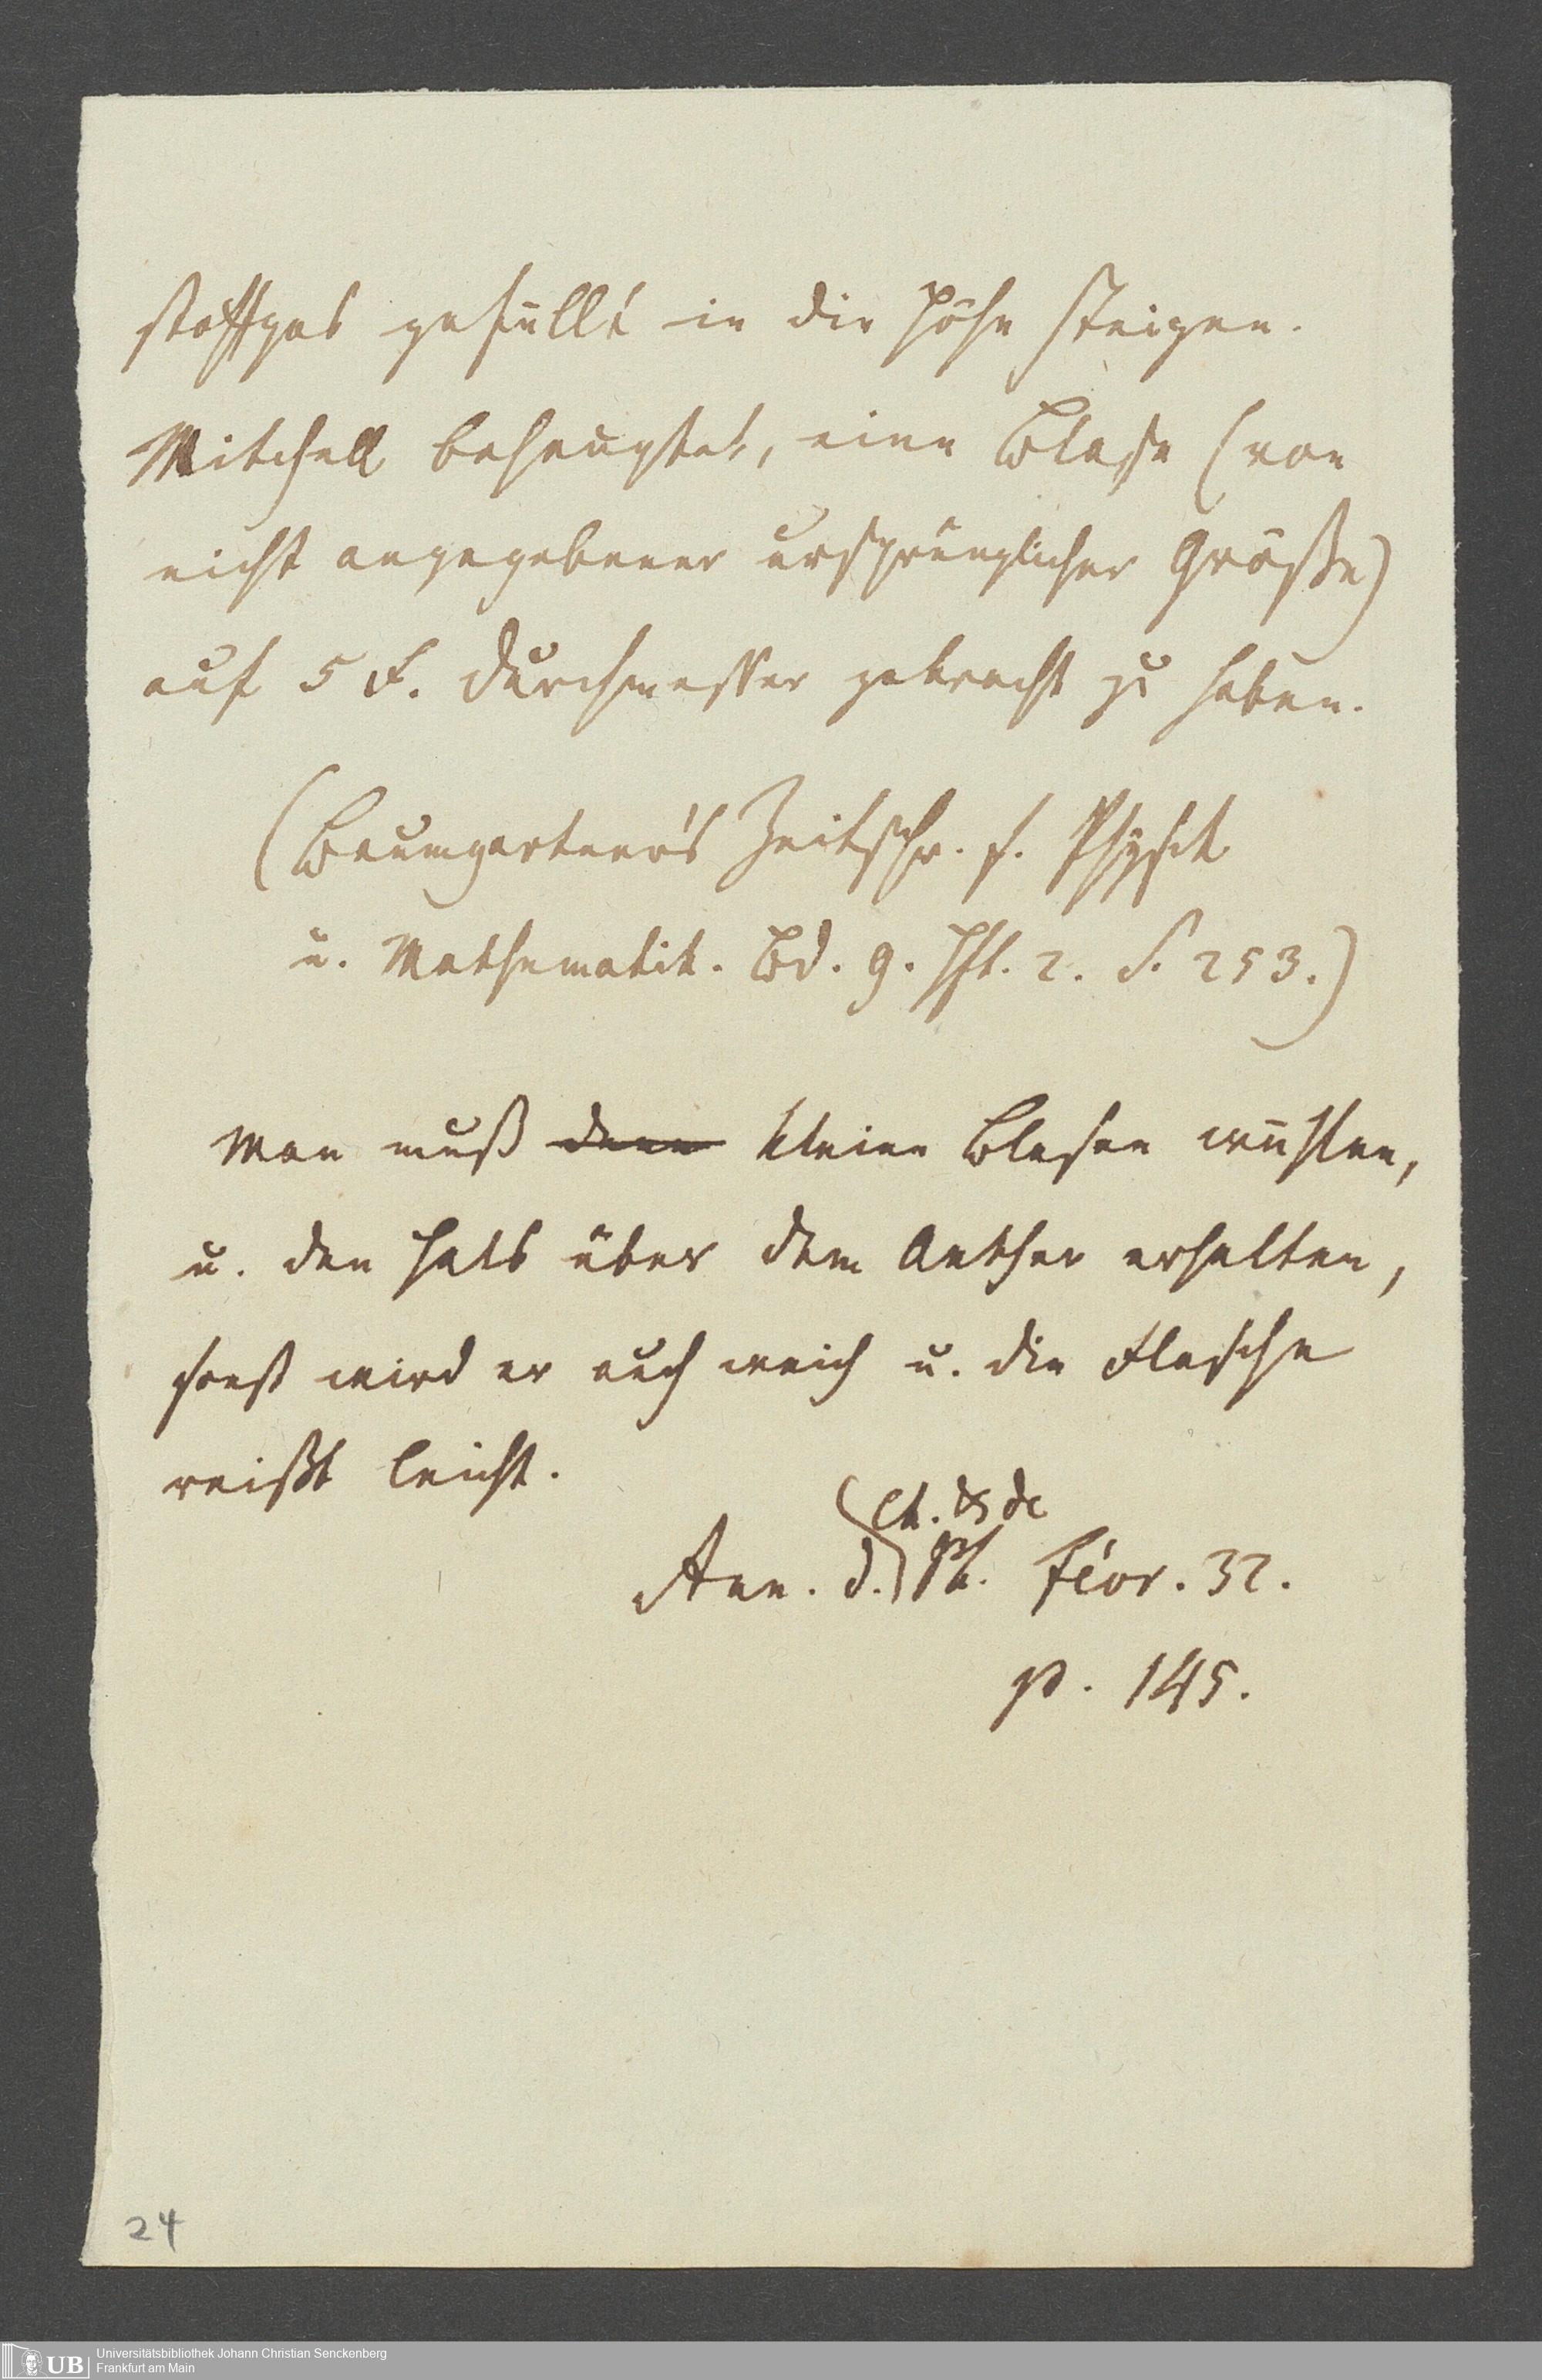 stoffgas gefüllt in die Höhe steigen.
Mitchell behauptet, eine Blase (von
nicht angegebener ursprünglicher Größe)
auf 5 F. Durchmesser gebracht zu haben.
(Baumgartner's Zeitschr. f. Physik
u. Mathematik. Bd. 9. Hft. 2. S. 253.)
Man muß denn kleine Blasen wählen,
u. den Hals über dem Aether erhalten,
sonst wird er auch weich u. die Flasche
reißt leicht.
Ch. & de
Ann. d. Ph. Févr. 32.
p. 145.
24
UB Universitätsbibliothek Johann Christian Senckenberg
Frankfurt am Main